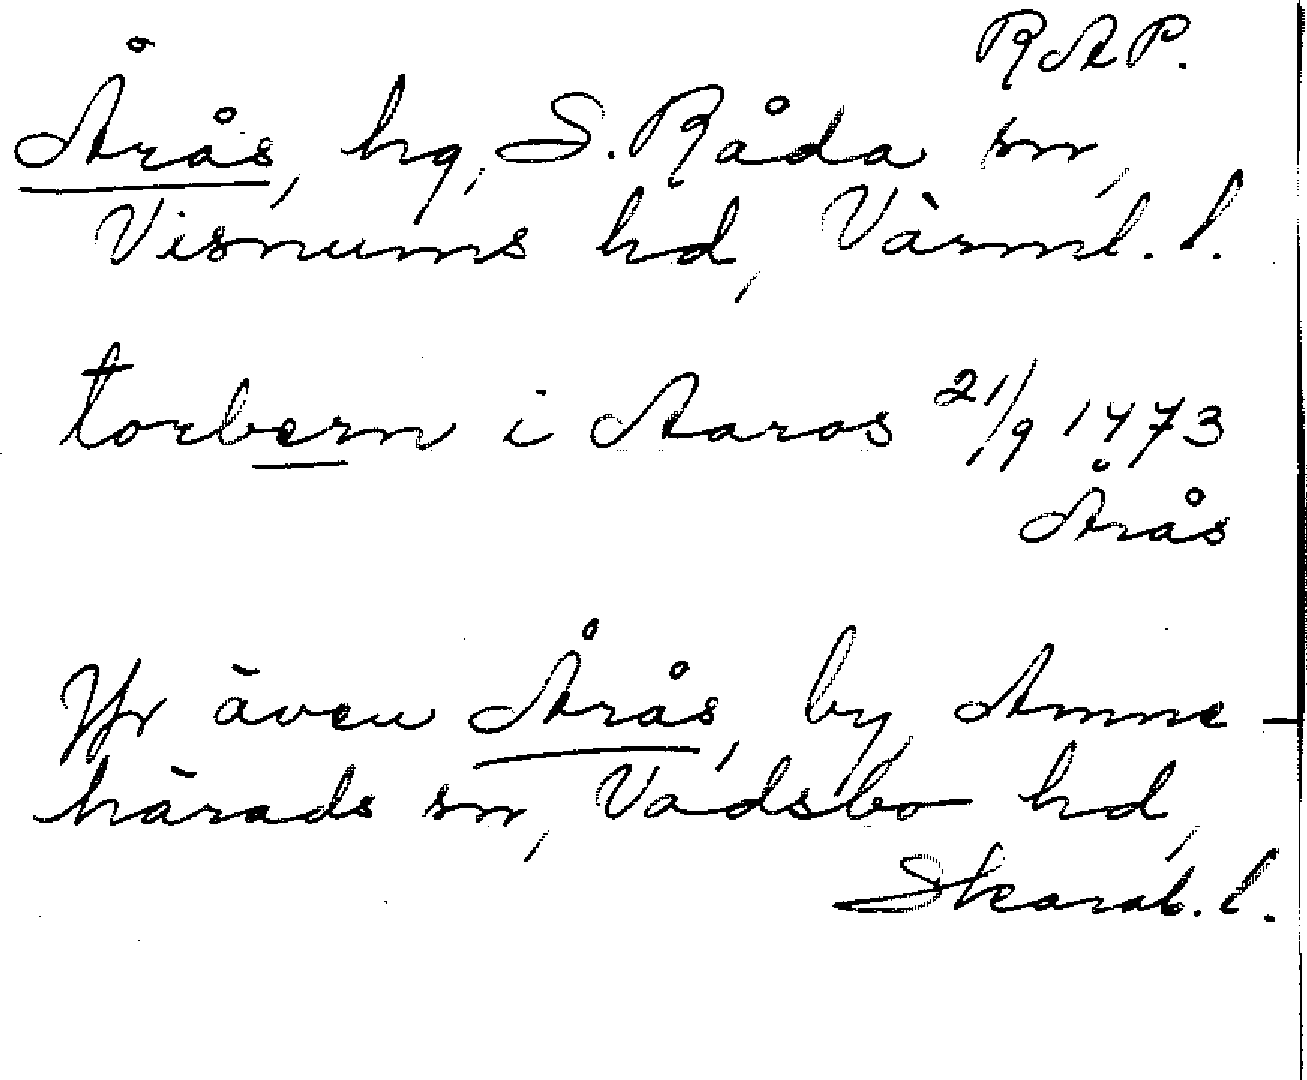 RAP.
Årås, hg, S. Råda sn,
Visnums hd, Värml. l.
torbern i Aaras 21/9 1473
Årås
Jfr även Årås, by, Amne-
härads sn, Vadsbo hd,
Skarab. l.